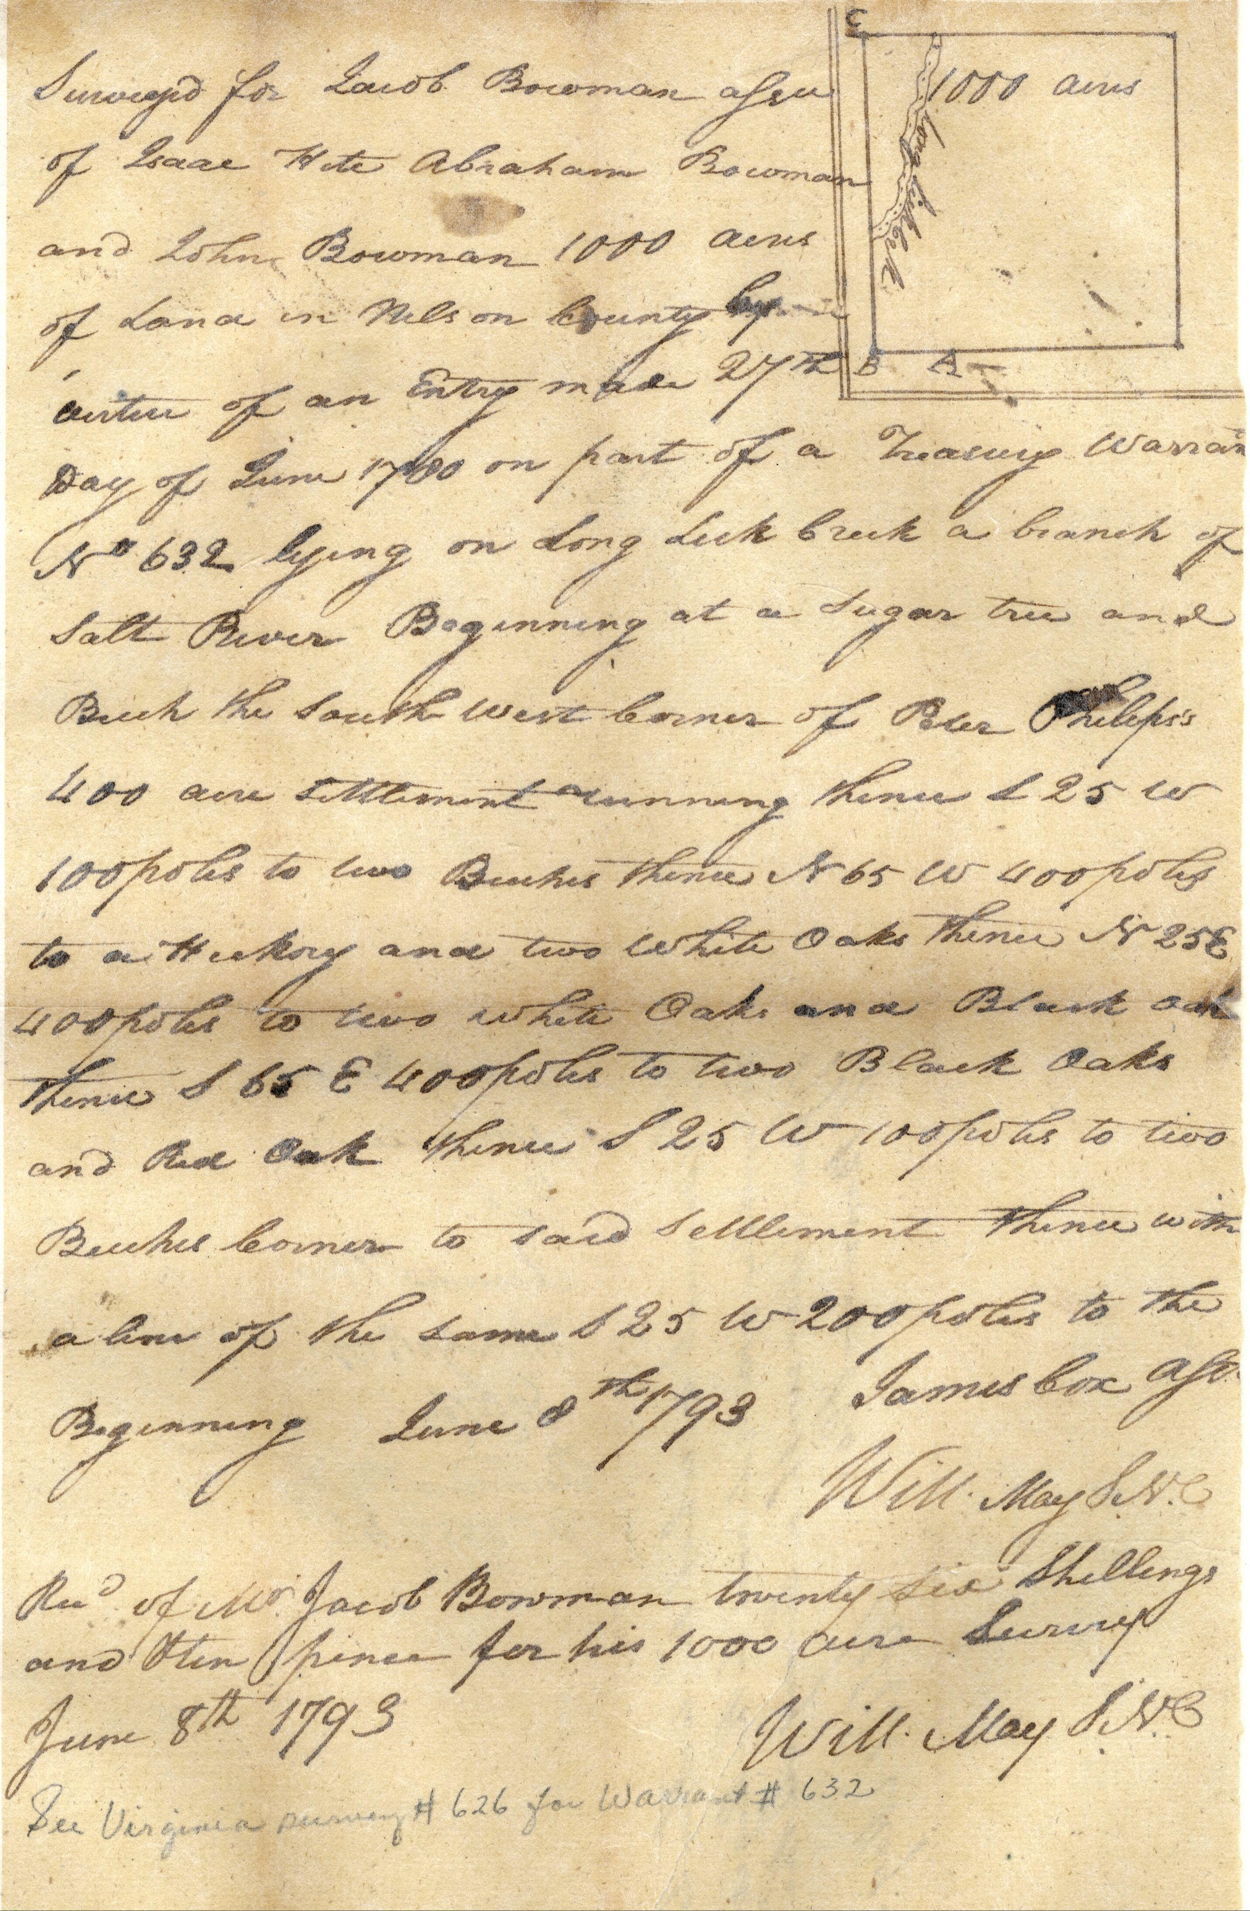 C
1000 acres
Long Lick Creek
B A
Surveyed for Jacob Bowman assee
of Isaac Hite Abraham Bowman
and John Bowman 1000 acres
of Land in Nelson County by
virtue of an Entry made 27th
Day of June 1780 on part of a Treasury Warran
No 632 lying on Long Lick Creek a branch of
Salt River Beginning at a Sugar tree and
Beech the South West Corner of Peter Phileps's
400 acre settlement running thence S 25 W
100 poles to two Beeches thence N 65 W 400 poles
to a Hickory and two White Oaks thence N 25 E
400 poles to two white Oaks and Black oak
thence S 65 E 400 poles to two Black Oaks
and Red Oak thence S 25 W 100 poles to two
Beeches Corner to said Settlement thence with
a line of the same S 25 W 200 poles to the
Beginning June 8th 1793 James Cox Asst.
Will. May S.N.C
Recd of Mr Jacob Bowman twenty six Shillings
and ten pence for his 1000 acre Survey
June 8th 1793
Will. May S.N.C
See Virginia survey # 626 for Warrant # 632